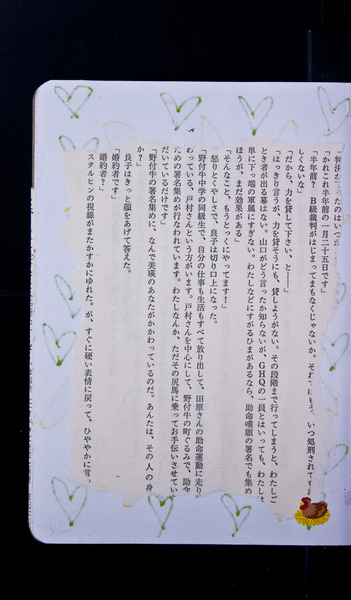 「かれこれ半年前の一月二十五日です」
「半年前？　B級裁判がはじまってまもなくじゃないか。それじゃもう、いつ処刑されてす
しくないな」
「だから、力を貸して下さい、と――」
「はっきり言うが、力を貸そうにも、貸しようがない。その段階まで行ってしまうと、わたしご
とき者が出る幕はない。山口がどう言ったか知らないが、GHQの一員とはいっても、わたしは
単に下っ端の軍属にすぎない。わたしなどにすがるひまがあるなら、助命嘆願の署名でも集め
ほうが、まだ効果がある」
「そんなこと、もうとっくにやってます！」
怒りとくやしさで、良子は切り口上になった。
「野付牛中学の同級生で、自分の仕事も生活もすべて放り出して、田原さんの助命運動に走り
わっている、戸村さんという方がいます。戸村さんを中心にして、野付牛の町ぐるみで、助命
ための署名集めが行なわれています。わたしなんか、ただその尻馬に乗ってお手伝いさせてい
だいているだけです」
「野付牛の署名集めに、なんで美瑛のあなたがかかわっているのだ。あんたは、その人の身
か？」
良子はきっと顔をあげて答えた。
「婚約者です」
「婚約者？」
スタルヒンの視線がまたかすかにゆれた。が、すぐに硬い表情に戻って、ひややかに言